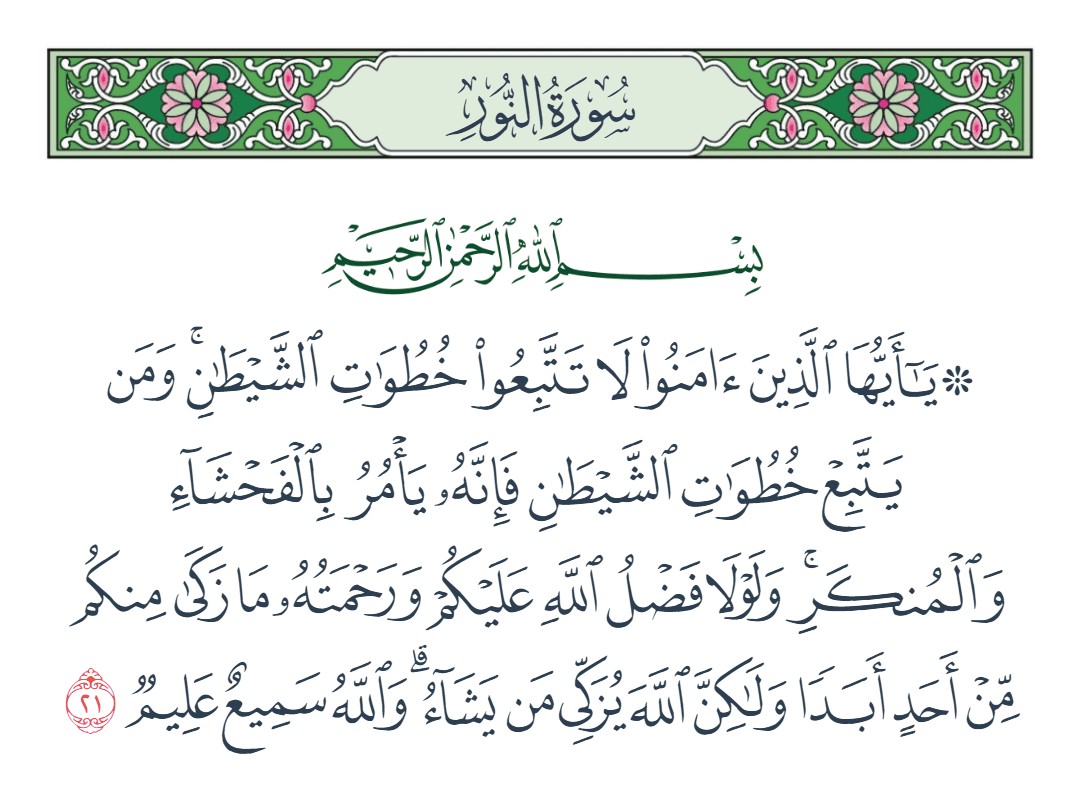 سُورَةُ النُّورِ
بِسْمِ ٱللَّهِ ٱلرَّحْمَٰنِ ٱلرَّحِيمِ
۞ يَٰٓأَيُّهَا ٱلَّذِينَ ءَامَنُوا۟ لَا تَتَّبِعُوا۟ خُطُوَٰتِ ٱلشَّيْطَٰنِ ۚ وَمَن
يَتَّبِعْ خُطُوَٰتِ ٱلشَّيْطَٰنِ فَإِنَّهُۥ يَأْمُرُ بِٱلْفَحْشَآءِ
وَٱلْمُنكَرِ ۚ وَلَوْلَا فَضْلُ ٱللَّهِ عَلَيْكُمْ وَرَحْمَتُهُۥ مَا زَكَىٰ مِنكُم
مِّنْ أَحَدٍ أَبَدًا وَلَٰكِنَّ ٱللَّهَ يُزَكِّى مَن يَشَآءُ ۗ وَٱللَّهُ سَمِيعٌ عَلِيمٌ ٢١